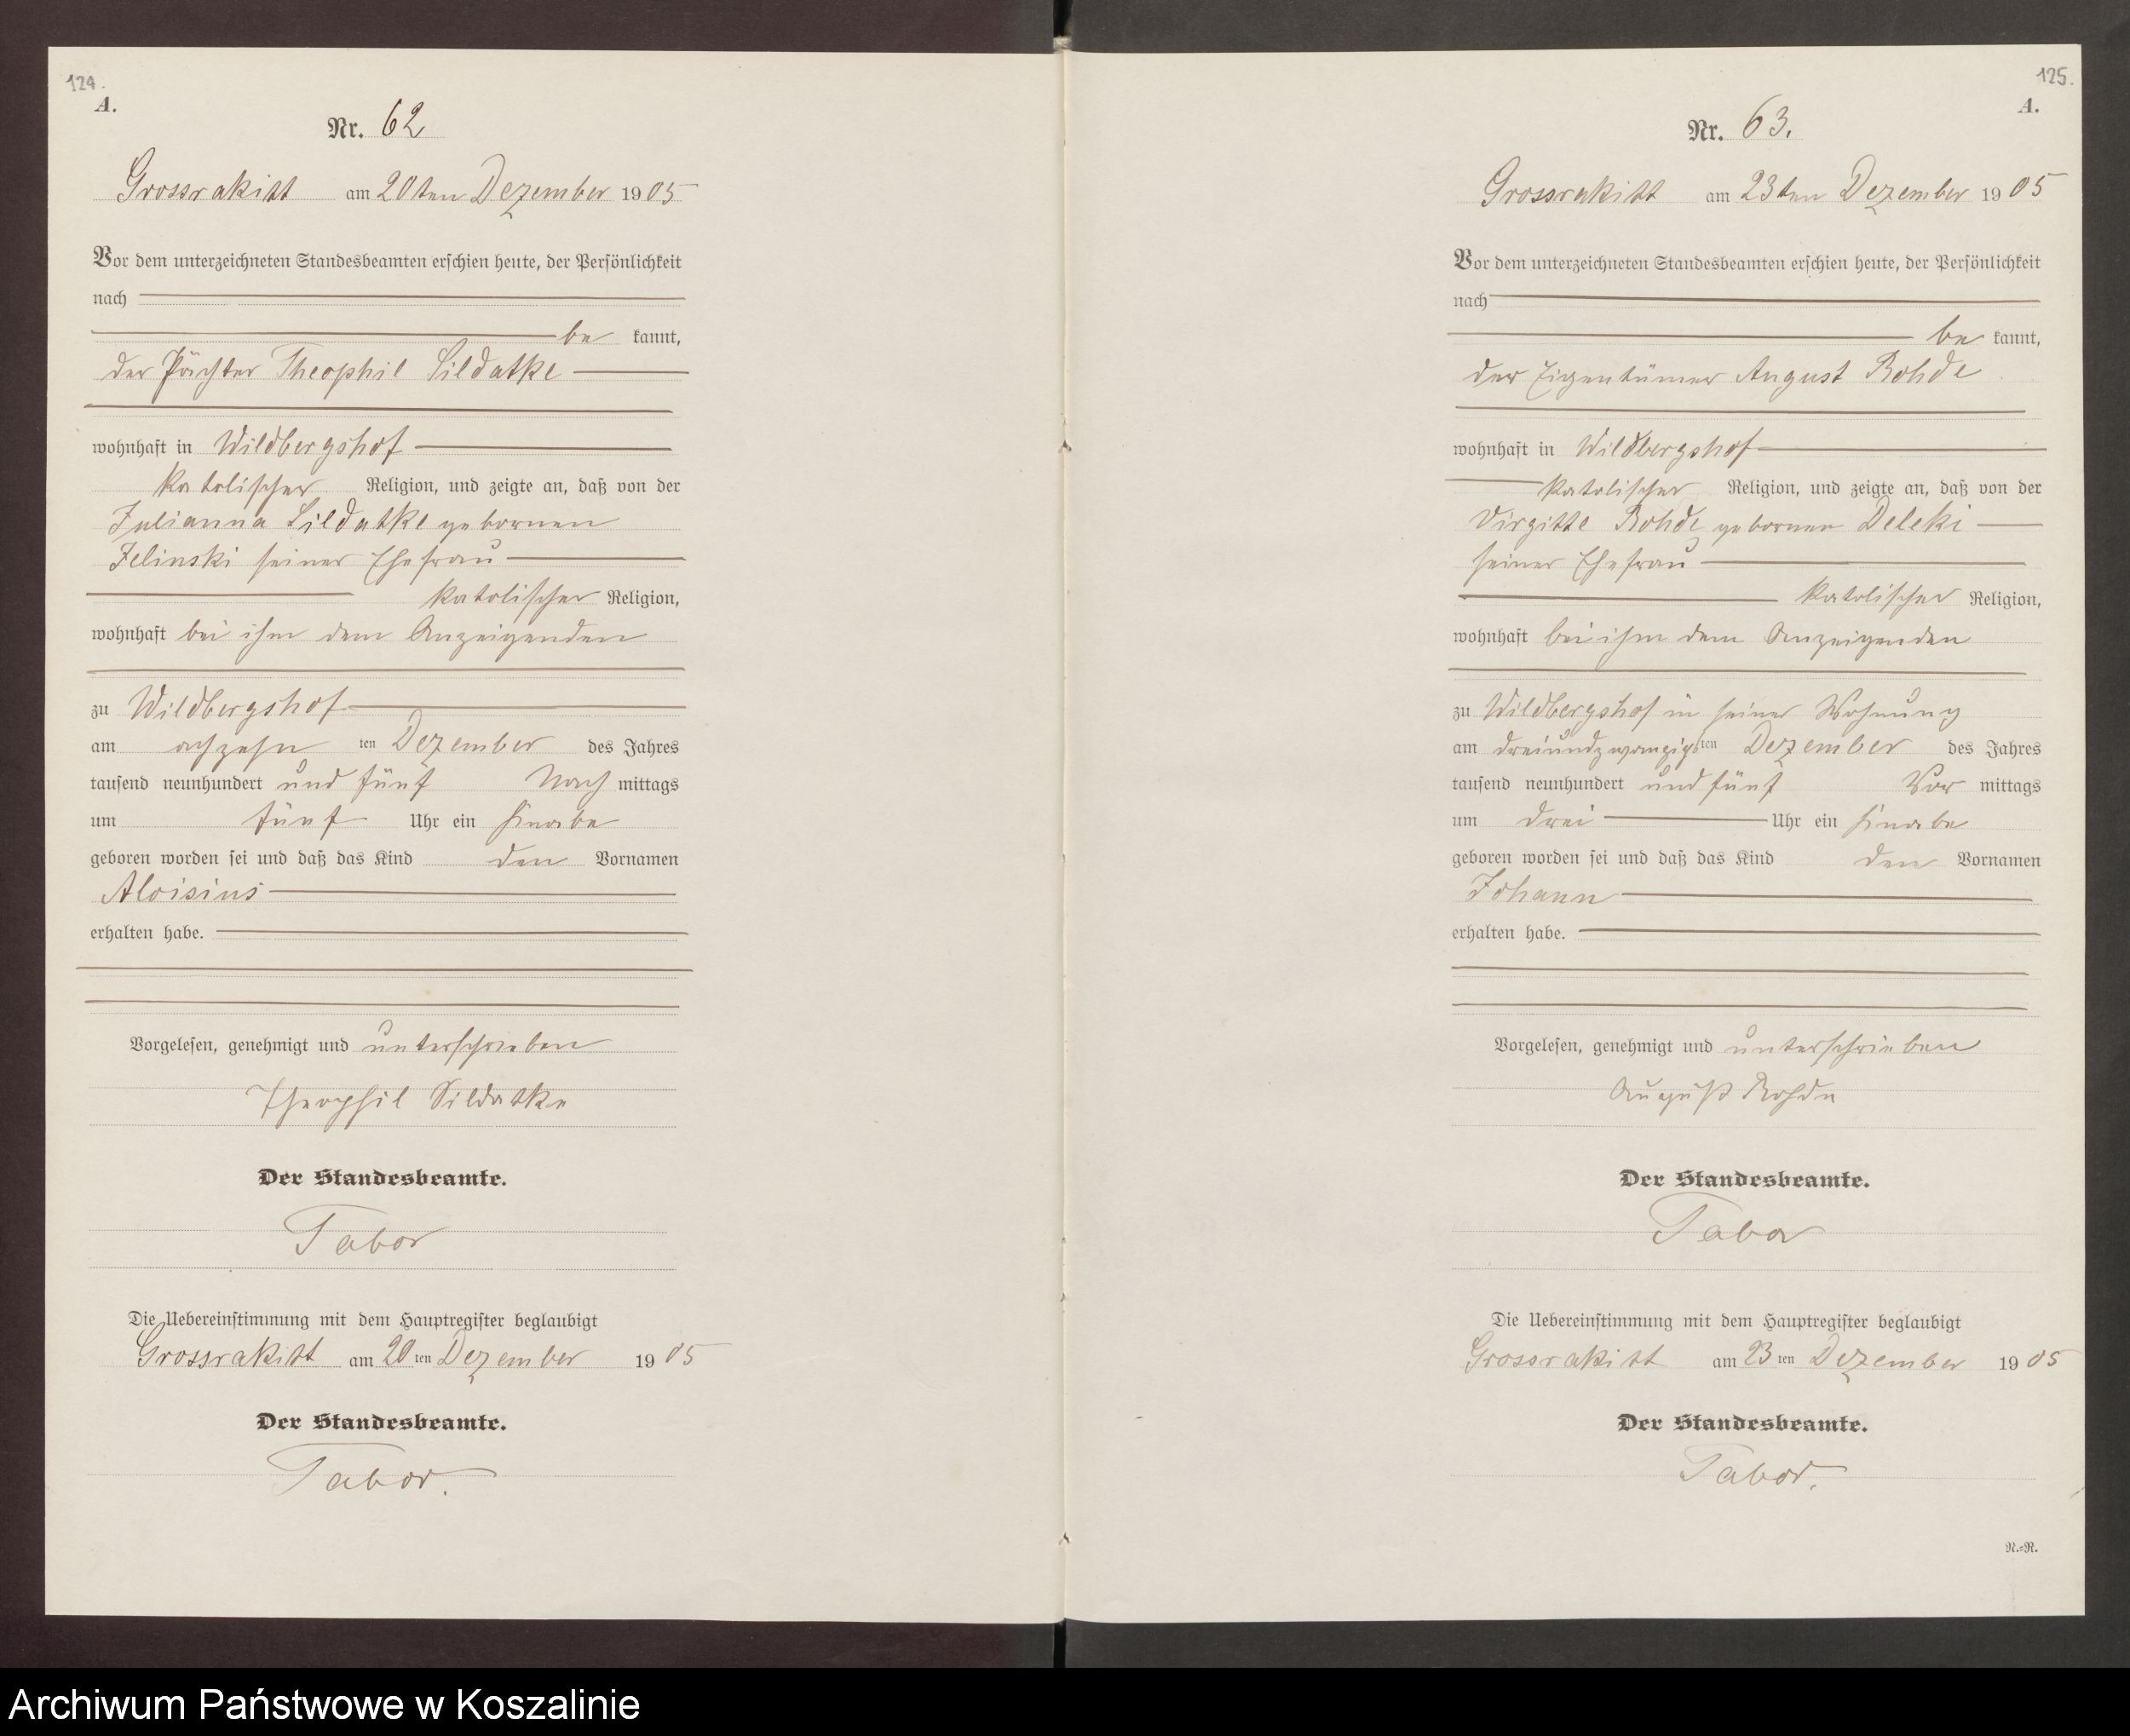 124.
A.
Nr. 62
Grossrakitt am 20ten Dezember 1905
Vor dem unterzeichneten Standesbeamten erschien heute, der Persönlichkeit
nach
be kannt,
der Pächter Theophil Sildatke
wohnhaft in Wildbergshof
katolischer Religion, und zeigte an, daß von der
Julianna Sildatke gebornen
Jelinski seiner Ehefrau
katolischer Religion,
wohnhaft bei ihm dem Anzeigenden
zu Wildbergshof
am achzehn ten Dezember des Jahres
tausend neunhundert und fünf Nach mittags
um fünf Uhr ein Knabe
geboren worden sei und daß das Kind den Vornamen
Aloisius
erhalten habe.
Vorgelesen, genehmigt und unterschrieben
Theophil Sildatke
Der Standesbeamte.
Tabor
Die Uebereinstimmung mit dem Hauptregister beglaubigt
Grossrakitt am 20 ten Dezember 1905
Der Standesbeamte.
Tabor.
125.
A.
Nr. 63.
Grossrakitt am 23ten Dezember 1905
Vor dem unterzeichneten Standesbeamten erschien heute, der Persönlichkeit
nach
be kannt,
der Eigentümer August Rohde
wohnhaft in Wildbergshof
katolischer Religion, und zeigte an, daß von der
Virgitte Rohde geborner Deleki
seiner Ehefrau
katolischer Religion,
wohnhaft bei ihm dem Anzeigenden
zu Wildbergshof in seiner Wohnung
am dreiundzwanzigsten Dezember des Jahres
tausend neunhundert und fünf Vor mittags
um drei Uhr ein Knabe
geboren worden sei und daß das Kind den Vornamen
Johann
erhalten habe.
Vorgelesen, genehmigt und unterschrieben
August Rohde
Der Standesbeamte.
Tabor
Die Uebereinstimmung mit dem Hauptregister beglaubigt
Grossrakitt am 23 ten Dezember 1905
Der Standesbeamte.
Tabor.
N.=R.
Archiwum Państwowe w Koszalinie